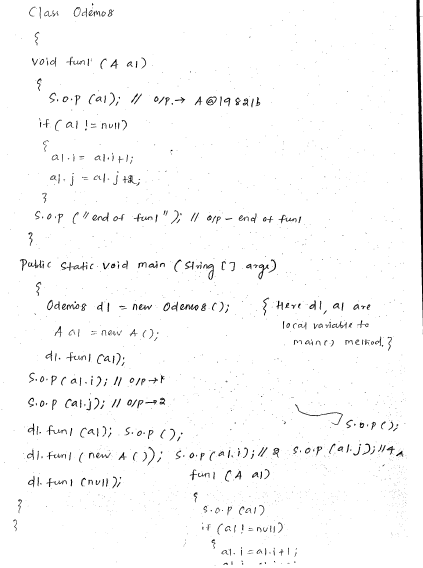 Class Odemo8
{
void fun1 (A a1)
{
S.o.p (a1); // o/p → A@19821b
if (a1 != null)
{
a1.i = a1.i+1;
a1.j = a1.j+2;
}
S.o.p ("end of fun1"); // o/p – end of fun1
}
Public static void main (String [] args)
{
Odemo8 d1 = new Odemo8 (); { Here d1, a1 are
A a1 = new A (); local variable to
d1. fun1 (a1); main() method. }
S.o.p (a1.i); // o/p →
S.o.p (a1.j); // o/p → 2
S.o.p ();
d1. fun1 (a1); S.o.p ();
d1. fun1 (new A ()); S.o.p (a1.i); // 2 S.o.p (a1.j); // 4
d1. fun1 (null); fun1 (A a1)
{
S.o.p (a1)
} if (a1 != null)
} { a1.i = a1.i+1;